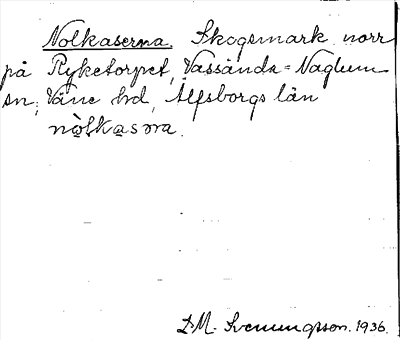 Nolkaserna. Skogsmark norr
på Ryketorpet, Vassända-Naglum
sn, Väne hd, Älfsborgs län
D.M. Svenungsson. 1936.